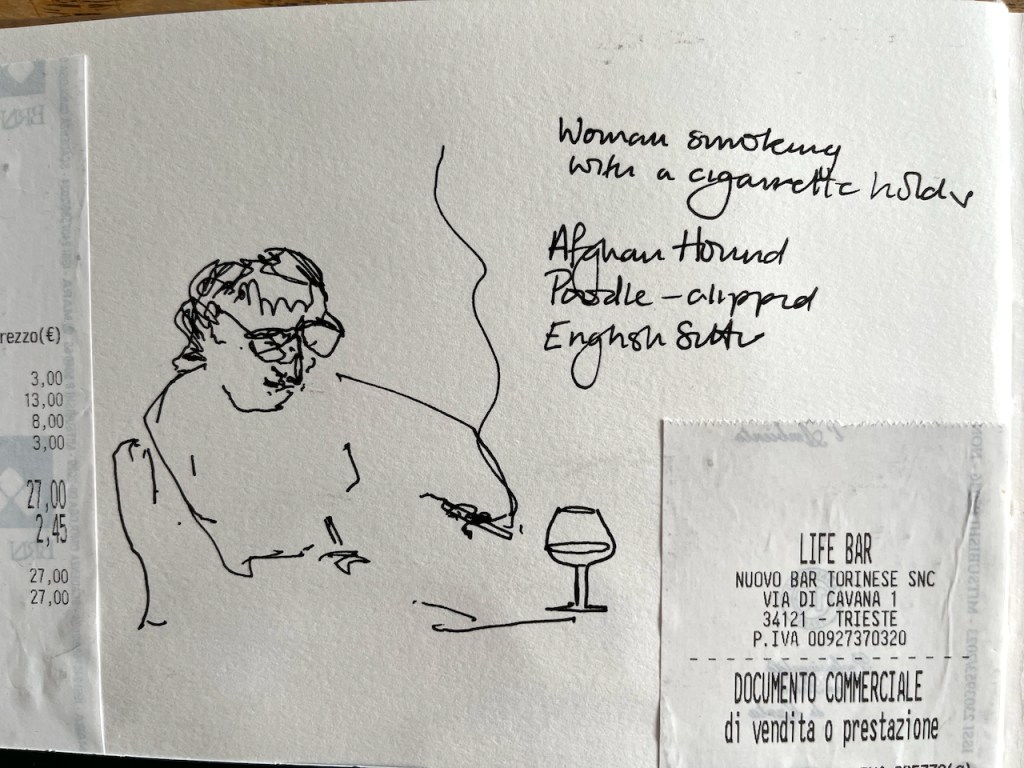 Woman smoking
with a cigarrette holder
Afghan Hound
Poodle - clipped
English Setter
rezzo(€)
3,00
13,00
8,00
3,00
27,00
2,45
27,00
27,00
LIFE BAR
NUOVO BAR TORINESE SNC
VIA DI CAVANA 1
34121 - TRIESTE
P.IVA 00927370320
DOCUMENTO COMMERCIALE
di vendita o prestazione